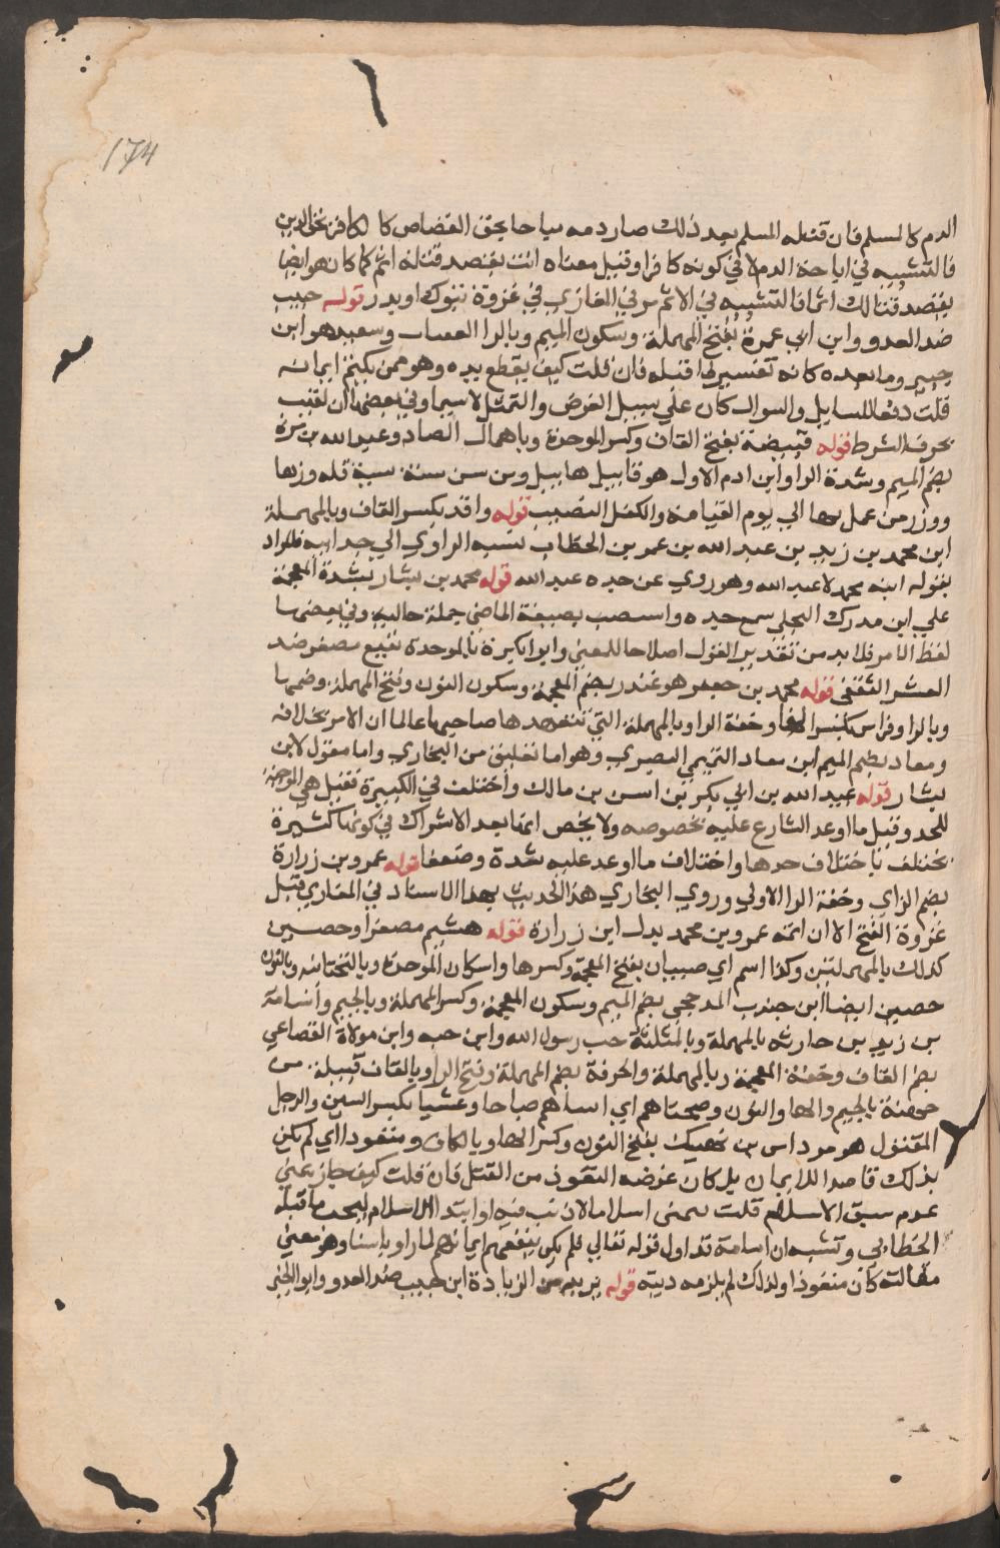 174
الدم كالمسلم فان قتله المسلم بعد ذلك صار دمه مباحا بحق القصاص كالكافر بحق الدين
فالتشبيه في اباحة الدم لا في كونه كافرا وقيل معناه انت بقصد قتله اثم كما كان هو ايضا
بقصد قتالك اثما فالتشبيه في الاثم مر في المغازي في غزوة تبوك او بدر قوله حبيب
ضد العدو وابن ابي عمرة بفتح المهملة وسكون الميم وبالرا القصاب وسعيد هو ابن
جبير وما بعده كانه تفسير لما قبله فان قلت كيف يقطع يده وهو ممن يكتم ايمانه
قلت دفعا للسايل والسوال كان علي سبيل الفرض والتمثل لاسيما وفي بعضها ان لقيت
بحرف الشرط قوله قبيصة بفتح القاف وكسر الموحدة وباهمال الصاد وعبد الله بن مرة
بضم الميم وشدة الرا وابن ادم الاول هو قابيل هابيل ومن سن سنة سيئة فله وزرها
ووزر من عمل بها الي يوم القيامة والكفل النصيب قوله واقد بكسر القاف وبالمهملة
ابن محمد بن زيد بن عبد الله بن عمر بن الخطاب نسبه الراوي الي جد ابيه فالمراد
بقوله ابيه محمد لا عبد الله وهو روي عن جده عبد الله قوله محمد بن بشار بشدة المعجمة
علي ابن مدرك البجلي سمع جده واستنصت بصيغة الماضي جملة حالية وفي بعضها
لفظ الامر فلا بد من تقدير القول اصلاحا للمعني وابو بكرة بالموحدة نفيع مصغر ضد
العشر الثقفي قوله محمد بن جعفر هو غندر بضم المعجمة وسكون النون وفتح المهملة وضمها
وبالرا وفراس بكسر الفا وخفة الرا وبالمهملة التي تتعهدها صاحبها عالما ان الامر بخلافه
ومعاد بضم الميم ابن معاد التميمي البصري وهو اما تعليق من البخاري واما مقول لابن
بشار قوله عبيد الله بن ابي بكر بن انس بن مالك واختلف في الكبيرة فقيل هي الموجبة
للحد وقيل ما اوعد الشارع عليه بخصوصه ولا يخص انما بعد الاشراك في كونها كثيرة
يختلف باختلاف حدها واختلاف ما اوعد عليه شدة وضعفا قوله عمرو بن زرارة
بضم الزاي وخفة الرا الاولي وروي البخاري هذا الحديث بهذا الاسناد في المغازي قبل
غزوة الفتح الا ان ثمه عمرو بن محمد بدل ابن زرارة قوله هشيم مصغرا وحصين
كذلك بالمهملتين وكذا اسم ابي ظبيان بفتح المعجمة وكسرها واسكان الموحدة وبالتحتانية وبالنون
حصين ايضا ابن جندب المدحجي بضم الميم وسكون المعجمة وكسر المهملة وبالجيم وأسامة
بن زيد بن حارثة بالمهملة وبالمثلثة حب رسول الله وابن حبه وابن مولاة القضاعي
بضم القاف وخفة المعجمة وبالمهملة والحرقة بضم المهملة وفتح الرا وبالقاف قبيلة من
جهينة بالجيم والها والنون وصبحناهم اي اتيناهم صباحا وغشينا بكسر الشين والرجل
المقتول هو مرداس بن نهيك بفتح النون وكسر الها وبالكاف ومتعوذا اي لم يكن
بذلك قاصدا للايمان بل كان غرضه التعوذ من القتل فان قلت كيف جاز تمني
عدم سبق الاسلام قلت تمني اسلاما لا ذنب فيه او ابتدا الاسلام ليجب ما قبله
الخطابي ويشبه ان اسامة تداول قوله تعالي فلم يكن ينفعهم ايمانهم لما راو باسنا وهو معني
مقالته كان متعوذا ولذلك لم يلزمه ديته قوله يزيد من الزيادة ابن حبيب ضد العدو وابو الخير